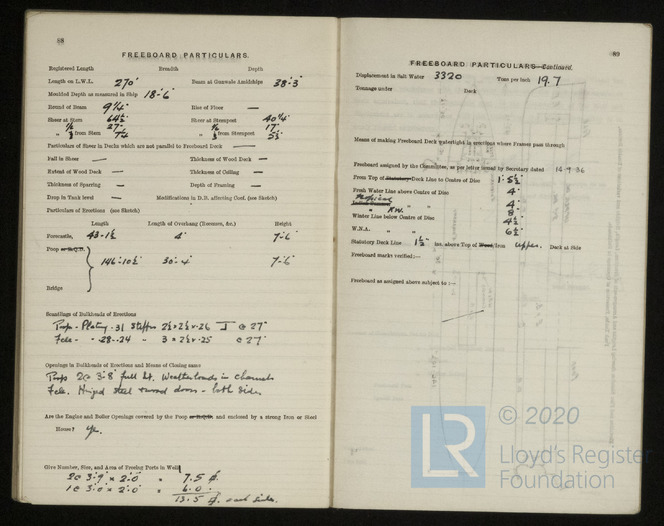 88
FREEBOARD PARTICULARS.
Registered Length Breadth Depth
Length on L.W.L. 270' Beam at Gunwale Amidships 38'·3"
Moulded Depth as measured in Ship 18'·6"
Round of Beam 9¼" Rise of Floor —
Sheer at Stem 64½" Sheer at Sternpost 40¼"
" ½ 27" " ½ 17"
" ⅓ from Stem 7¼ " ⅓ from Sternpost 5½"
Particulars of Sheer in Decks which are not parallel to Freeboard Deck —
Fall in Sheer — Thickness of Wood Deck —
Extent of Wood Deck — Thickness of Ceiling —
Thickness of Sparring — Depth of Framing —
Drop in Tank level — Modifications in D.B. affecting Coef. (see Sketch)
Particulars of Erections (see Sketch)
Length Length of Overhang (Recesses, &c.) Height
Forecastle, 43'-1½ 4" 7'-6"
Poop or R.Q.D.
146'-10½ 30'-4" 7'-6"
Bridge
Scantlings of Bulkheads of Erections
Poop - Plating ·31 Stiffrs 2½ x 2½ x ·26 @ 27"
Fcle - " ·28-·24 " 3 x 2½ x ·25 @ 27
Openings in Bulkheads of Erections and Means of Closing same
Poop 2 @ 3'·8" full ht. Weatherboards in channels
Fcle. Hinged steel & wood doors - both sides
Are the Engine and Boiler Openings covered by the Poop or R.Q.D. and enclosed by a strong Iron or Steel
House? Yes.
Give Number, Size, and Area of Freeing Ports in Well
2 @ 3'·9" x 2'·0" = 7·5
1 @ 3'·0" x 2'·0" = 6·0
13·5 each side.
89
FREEBOARD PARTICULARS—Continued.
Displacement in Salt Water 3320 Tons per inch 19.7
Tonnage under Deck
Means of making Freeboard Deck watertight in erections where Frames pass through
Freeboard assigned by the Committee, as per letter issued by Secretary dated 16·9·36
From Top of Statutory Deck Line to Centre of Disc 1'·5½"
Fresh Water Line above Centre of Disc 4"
Tropical " " 4"
" F.W. " 8
Winter Line below Centre of Disc 4½"
W.N.A. " " 6½"
Statutory Deck Line 1½" ins. above Top of Wood/Iron Upper. Deck at Side
Freeboard marks verified:—
Freeboard as assigned above subject to:—
LR
© 2020
Lloyd's Register
Foundation